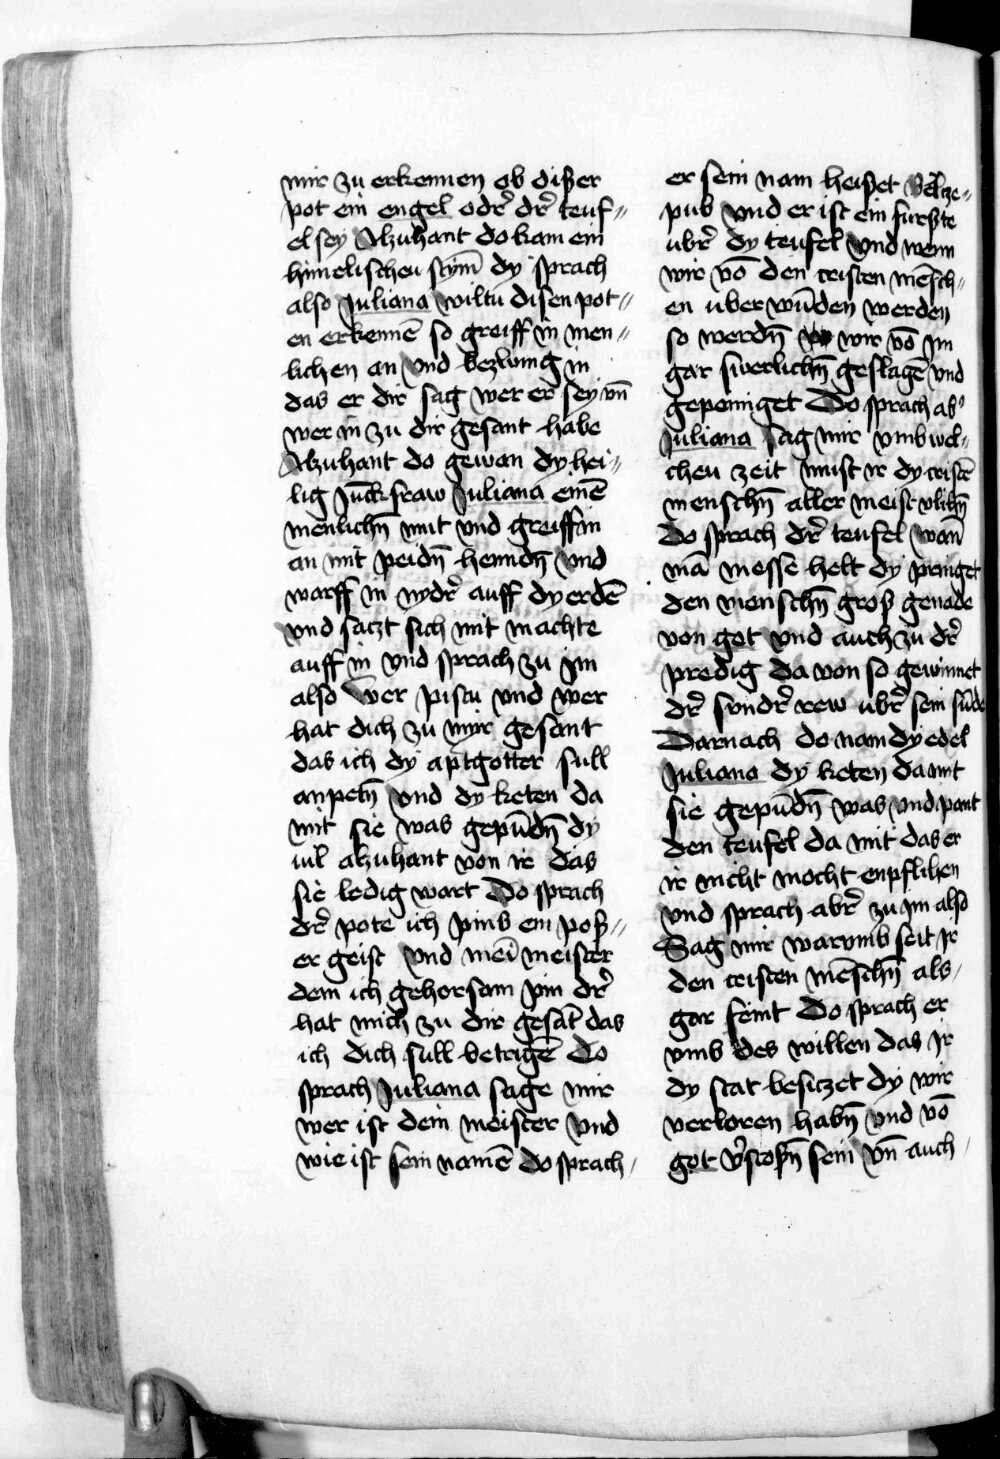 mir zu erkennen ob dißer
pot ein engel odr̄ dr̄ teuf⸗
el sey Alzuhant do kam ein
himelischeu stȳm dy sprach
also Juliana wiltu disen pot⸗
en erkennē so greiff in men⸗
lichen an vnd bezwing in
das er dir sag wer er sey vn̄
wer in zu dir gesant habe
Alzuhant do gewan dy hei⸗
lig Jūckfraw Juliana einē
menlichn̄ mut vnd greiff in
an mit peidn̄ henndn̄ vnd
warff in nydr̄ auff dy erdē
vnd saczt sich mit machte
auff in vnd sprach zu im
also Wer pistu vnd wer
hat dich zu myr gesant
das ich dy aptgotter sull
anpetn̄ vnd dy keten da
mit sie was gepūdn̄ dy
viel alzuhant von ir das
sie ledig wart Do sprach
dr̄ pote ich pinb ein poß⸗
er geist vnd mei̅ meister
dem ich gehorsam pin dr̄
hat mich zu dir gesāt das
ich dich sull betrigē Do
sprach Juliana sage mir
wer ist dein meister vnd
wie ist sein namē do sprach
er sein nam heißet Belze⸗
pub vnd er ist ein furste
ubr̄ dy teufel vnd wenn
wir vō den cristen mēsch⸗
en uber wūden werden
so werdn̄ wir vō im
gar swerlichn̄ geslagē vnd
gepeiniget Do sprach ab᾽
Juliana sag mir vmb wel⸗
cheu zeit must ir dy cristē
menschn̄ aller meist
Do sprach dr̄ teufel wan̄
mā messe helt dy pringet
den menschn̄ groß genade
von got vnd auch zu dr̄
predig da von so gewinnet
dr̄ sundr̄ rew ubr̄ sein sūde
Darnach do nam dy edel
Juliana dy keten damit
sie gepūdn̄ was vnd pant
den teufel da mit das er
ir nicht mocht enpflihen
vnd sprach abr̄ zu im also
Sag mir warumb seit Ir
den cristen mēschn̄ als
gar feint Do sprach er
vmb des willen das Ir
dy stat besiczet dy wir
verloren habn̄ vnd vō
got v̄stoßn̄ sein vn̄ auch